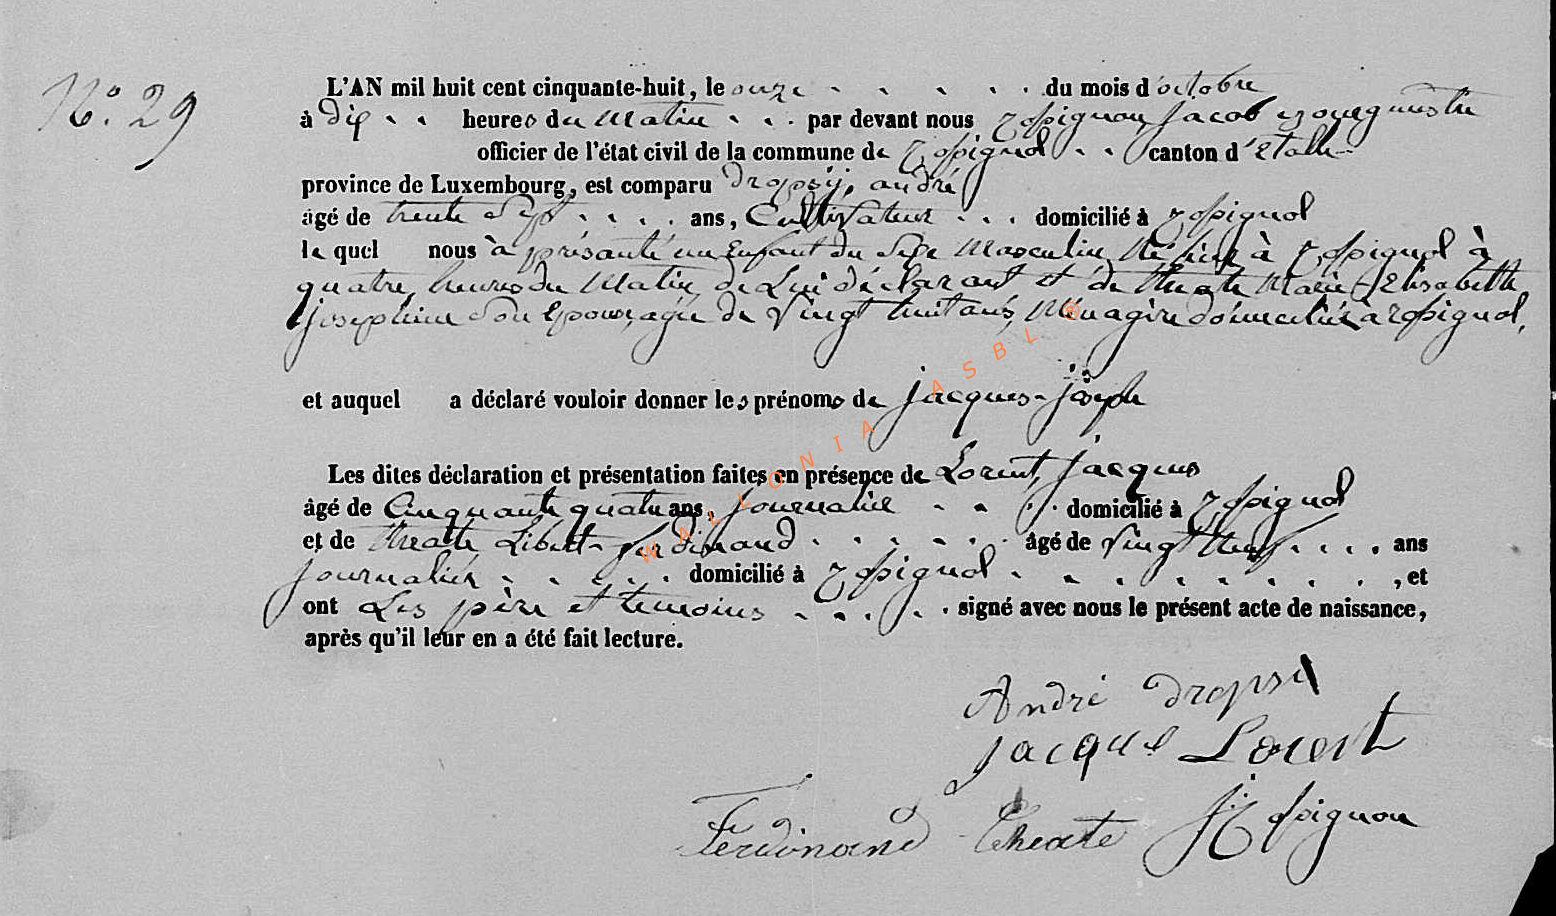 N.o 29
L'AN mil huit cent cinquante-huit, le onze du mois d'octobre
à dix heures du matin par devant nous Rossignon, Jacob Bourgmestre
officier de l'état civil de la commune de Rossignol canton d'Etalle
province de Luxembourg, est comparu Dropsy, andré
âgé de trente Sept ans, Cultivateur domicilié à Rossignol
le quel nous à présanté un Enfant du Sexe Masculin, Né à Rossignol à
quatre heures du Matin de Lui déclarant et de theate Marie Elisabethe
Josephine Son Epouse, agée de Vingt huit ans, Ménagère domiciliée à Rossignol,
et auquel a déclaré vouloir donner les prénoms de Jacques-Joseph
Les dites déclaration et présentation faites en présence de Lorent, Jacques
âgé de Cinquante quatre ans, Journalier domicilié à Rossignol
et de theate Libert-ferdinand âgé de Vingt ans
Journalier domicilié à Rossignol, et
ont Les père et temoins signé avec nous le présent acte de naissance,
après qu'il leur en a été fait lecture.
André Dropsy
Jacque Lorent
Ferdinand Theate JRossignon
WALLONIA ASBL